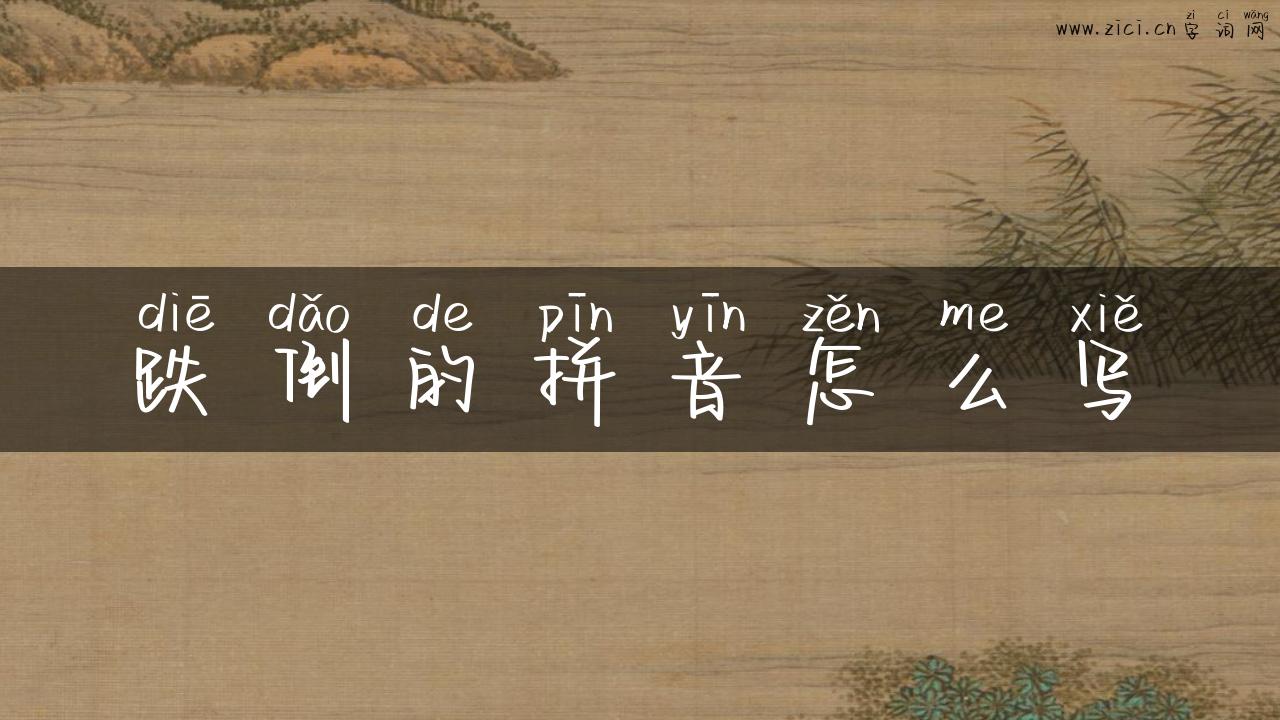 zì cí wǎng
www.zici.cn 字词网
diē dǎo de pīn yīn zěn me xiě
跌倒的拼音怎么写